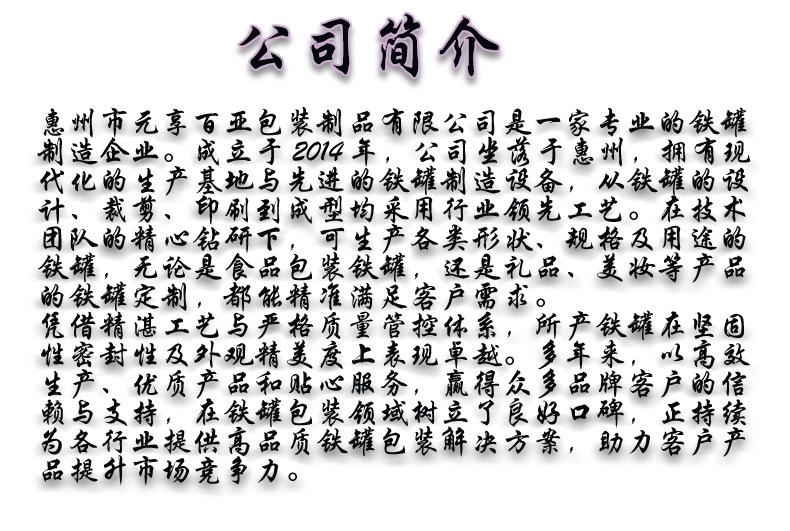 公司简介
惠州市元享百亚包装制品有限公司是一家专业的铁罐
制造企业。成立于2014年，公司坐落于惠州，拥有现
代化的生产基地与先进的铁罐制造设备，从铁罐的设
计、裁剪、印刷到成型均采用行业领先工艺。在技术
团队的精心钻研下，可生产各类形状、规格及用途的
铁罐，无论是食品包装铁罐，还是礼品、美妆等产品
的铁罐定制，都能精准满足客户需求。
凭借精湛工艺与严格质量管控体系，所产铁罐在坚固
性密封性及外观精美度上表现卓越。多年来，以高效
生产、优质产品和贴心服务，赢得众多品牌客户的信
赖与支持，在铁罐包装领域树立了良好口碑，正持续
为各行业提供高品质铁罐包装解决方案，助力客户产
品提升市场竞争力。